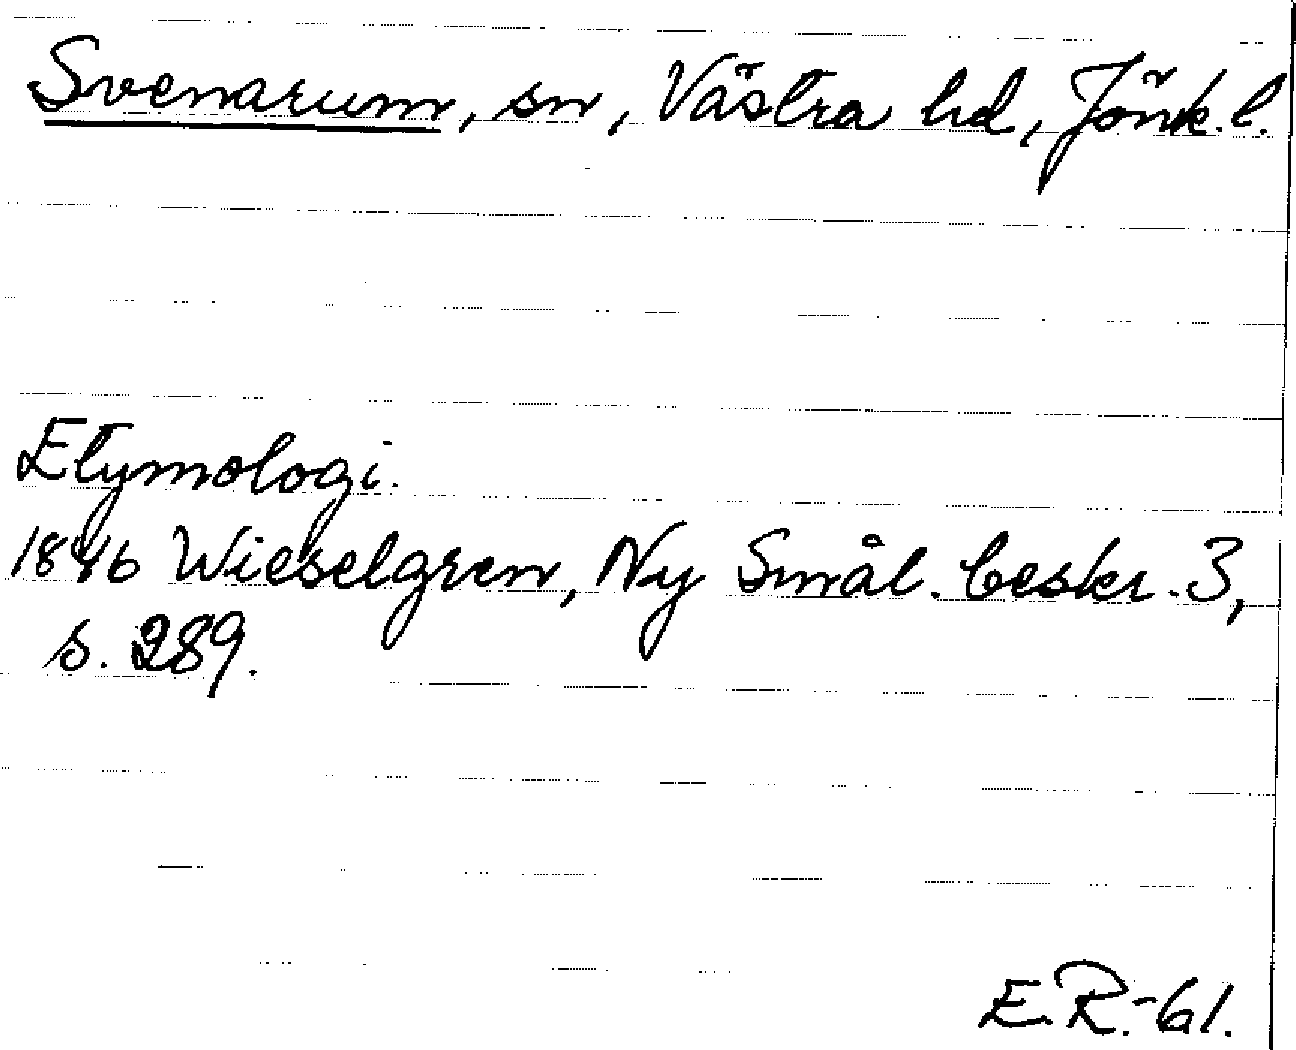 Svenarum, sn, Västra hd, Jönk. l.
Etymologi.
1846 Wieselgren, Ny Smål. beskr. 3,
s. 289.
E.R.-61.